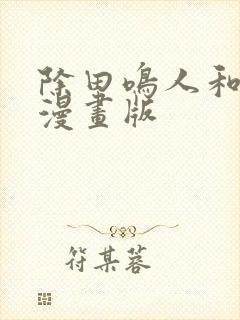 除田鳴人和
漫畫版
符某蓉